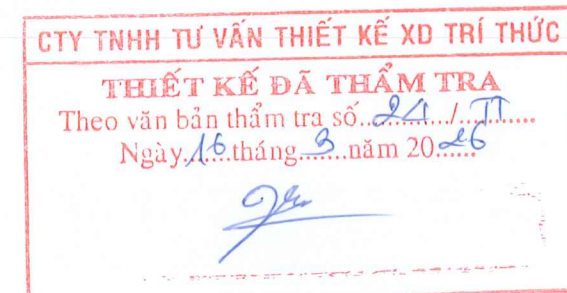 CTY TNHH TƯ VẤN THIẾT KẾ XD TRÍ THỨC
THIẾT KẾ ĐÃ THẨM TRA
Theo văn bản thẩm tra số..21../..TT......
Ngày..16.tháng..3...năm 20.26